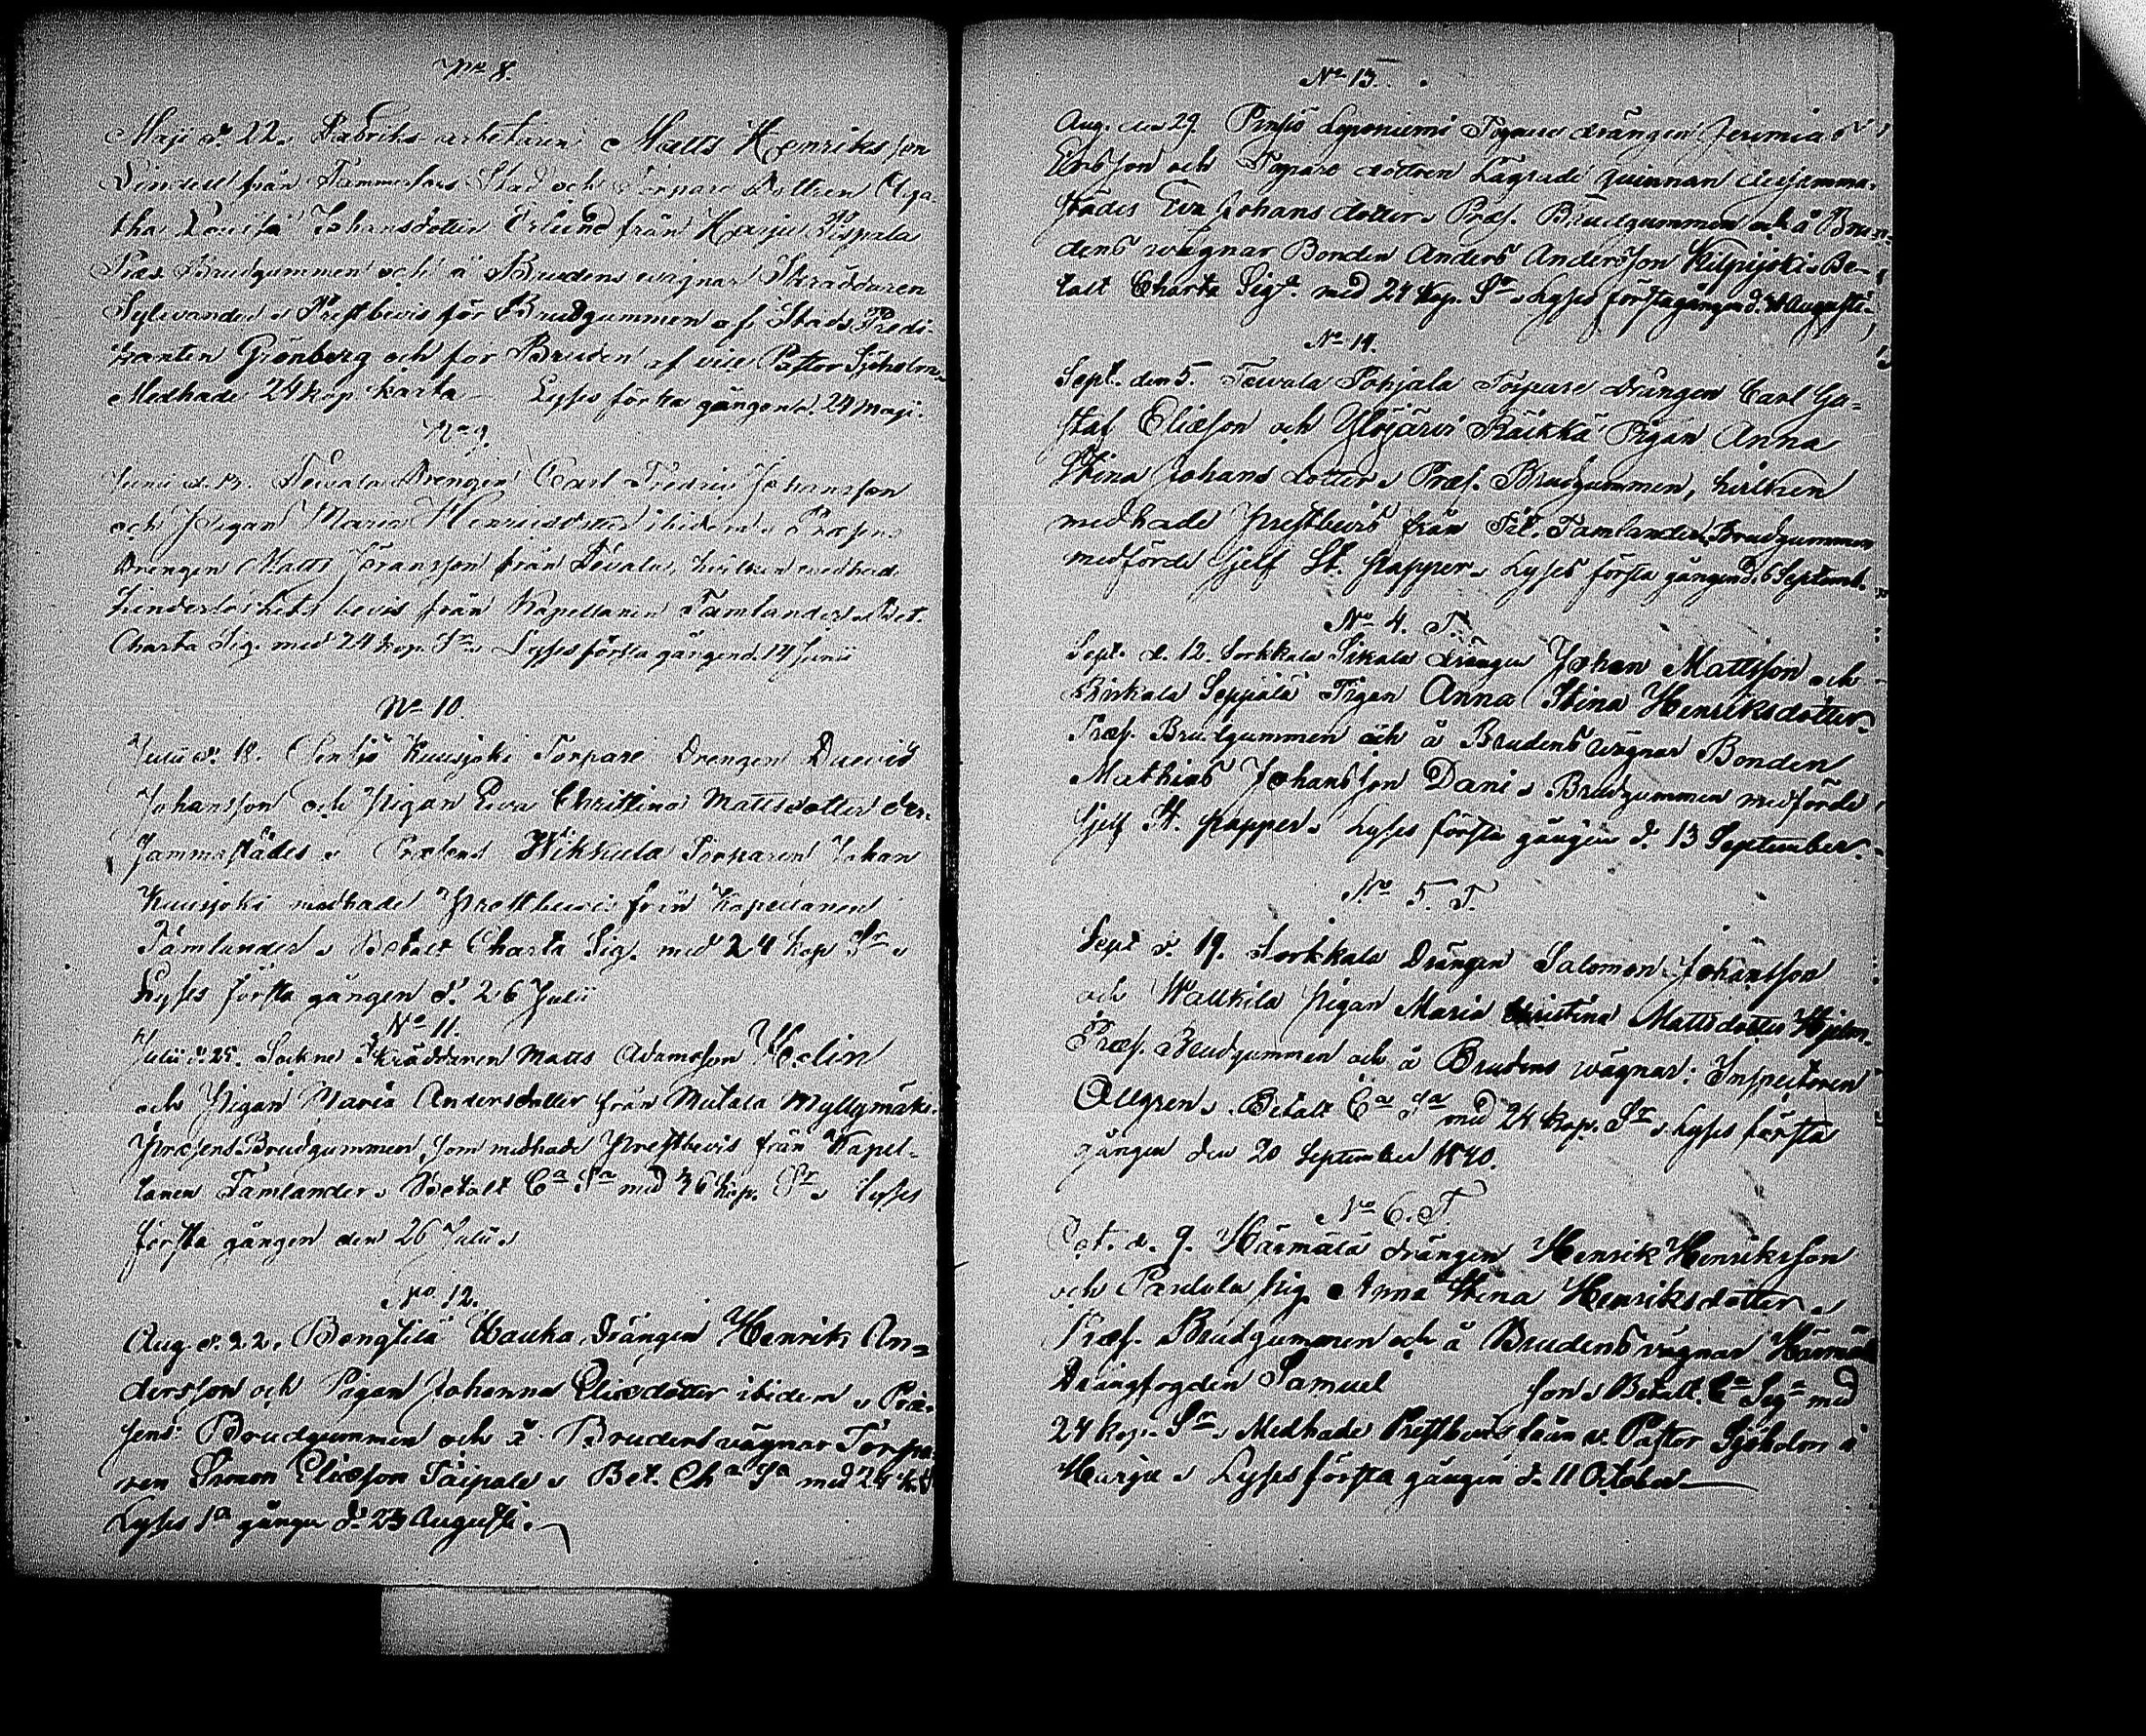 No 8.
Maji d. 22. Fabriks arbetaren Matts Henriksson
Lindell från Tammerfors Stad och Torpare Dottren Aga-
tha Lovisa Johansdotter Erlund från Harju Pispala
Præs. Brudgummen och å Brudens wägnar Skräddaren
Sylvander Prestbevis för Brudgummen af Stads Predi-
kanten Grönberg och för Bruden af vice Pastor Sjöholm.
Medhade 24 kop karta Lyses första gången d. 24 Maji.
No 9.
Junii d. 13. Tevala Drengen Carl Fredric Johansson
och Pigan Maria Henricsdotter ibidem Præsens
Drengen Matts Göransson från Tevala, hvilken medhade
hinderlöshets bevis från Kapellanen Tamlander Bet.
Charta Sig. med 24 kop. Sr. Lyses första gången d. 14 Junii
No 10.
Julii d. 18. Kuusjoki Torpare Drengen David
Johansson och Pigan Eva Christina Mattsdotter der-
sammastädes Præsens Wikkula Torparen Johan
Kuusjoki medhade Prestbevis från Kapellanen
Tamlander Betalt Charta Sig. med 24 kop Sr
Lyses första gången d. 26 Julii
No 11.
Julii d. 25. Sockne Skräddaren Matts Adamsson Helin
och Pigan Maria Andersdotter från Mutala Myllymäki.
Præsens Brudgummen, som medhade Prestbevis från Kapel-
lanen Tamlander Betalt Ca Sa med 36 kop. Sr Lyses
första gången den 26 Julii
No 12.
Aug. d. 22. Bengtilä Hauka Drängen Henrik An-
dersson och Pigan Johanna Eliædotter ibidem Præ-
sens Brudgummen och å Brudens vägnar Torpa-
ren Simon Eliæson Taipale Bet. Cha Sa med 24 k. S.
Lyses 1a gången d. 23 Augusti.
No 13.
Aug. den 29. Pinsiö Leponiemi Torpare drängen Jeremias
Ersson och Torpare dottren Lägrade quinnan dersamma-
städes Eva Johans dotter Præs. Brudgummen och å Bru-
dens wägnar Bonden Anders Andersson Kilpijoki Be-
talt Charta Sigt. med 24 kop. Sr Lyses förstagången d. Augusti
No 14.
Sept. den 5. Tewala Pohjala Torpare drängen Carl Gu-
staf Eliæson och Ylöjärvi Räikkä Pigan Anna
Stina Johans dotter Præs. Brudgummen, hvilken
medhade prestbevis från Tit. Tamlander. Brudgummen
medförde sjelf St. papper Lyses första gången d. 6 Septemb.
No 4. T.
Sept. d. 12. Sorkkala Sikala drängen Johan Mattsson och
Birkala Seppälä Pigan Anna Stina Henriksdotter
Præs. Brudgummen och å Brudens wägnar Bonden
Mathias Johansson Dani Brudgummen medförde
sjelf St. papper Lyses första gången d. 13 September.
No 5. T.
Sept d. 19. Sorkkala Drängen Salomon Johansson
och Wallkila Pigan Maria Christina Mattsdotter Hjelm.
Præs. Brudgummen och å Brudens wägnar: Inspectoren
Allgren Betalt Ca Sa med 24 kop. Sr Lyses första
gången den 20 September 1840.
No 6. T.
Oct. d. 9. Härmälä drängen Henrik Henriksson
och Partola pig. Anna Stina Henriksdotter
Præs. Brudgummen och å Brudens vägnar Härmälä
Drängfogden Samuel son Betalt Ca Siga med
24 kop. Sr Medhade Prestbevis från v. Pastor Sjöholm i
Harju Lyses första gången d. 11 October